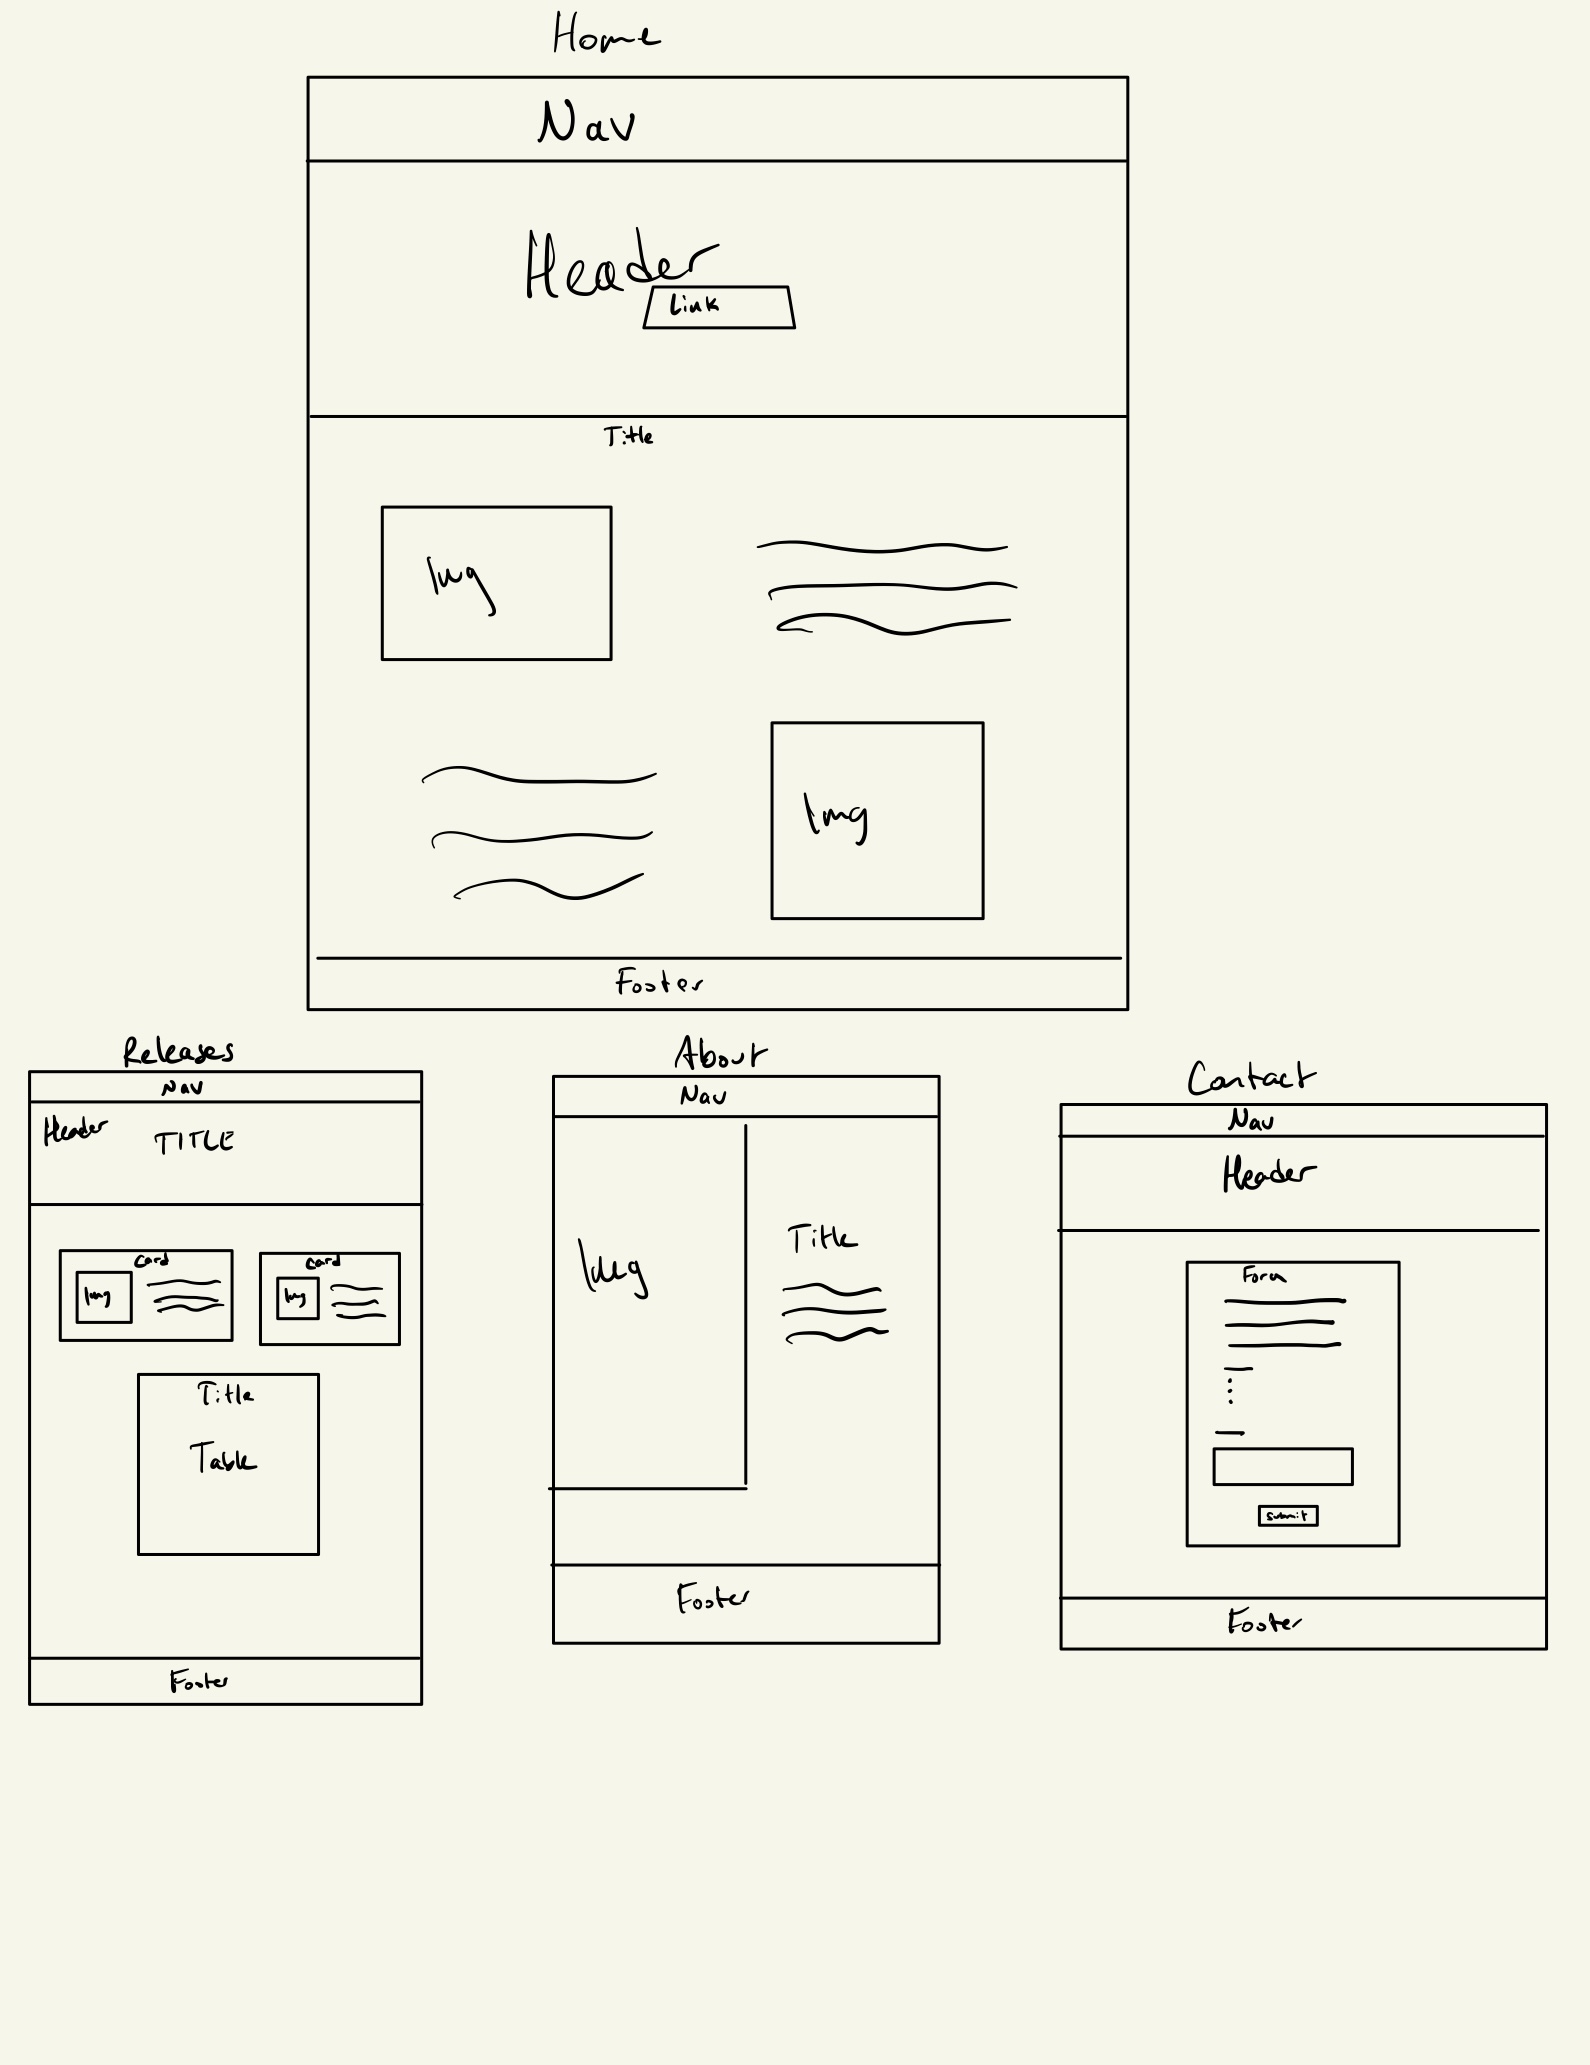 Home
Nav
Header
Link
Title
Img
Img
Footer
Releases
Nav
Header
TITLE
Card
Img
Card
Img
Title
Table
Footer
About
Nav
Img
Title
Footer
Contact
Nav
Header
Form
submit
Footer